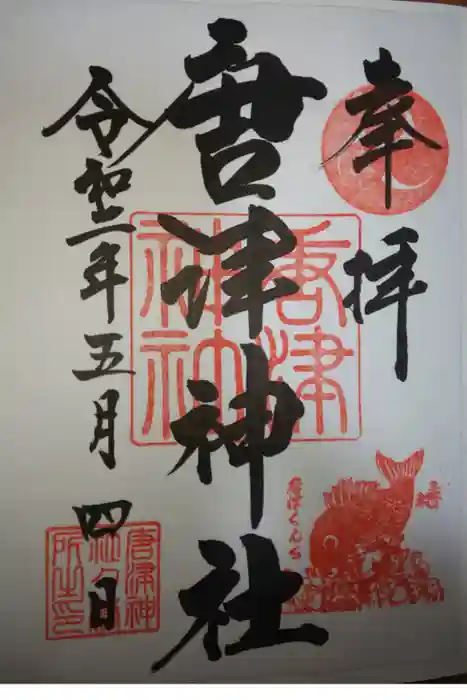 奉拝
唐津神社
唐津
神社
唐津くんち
令和二年五月四日
唐津神
所之印